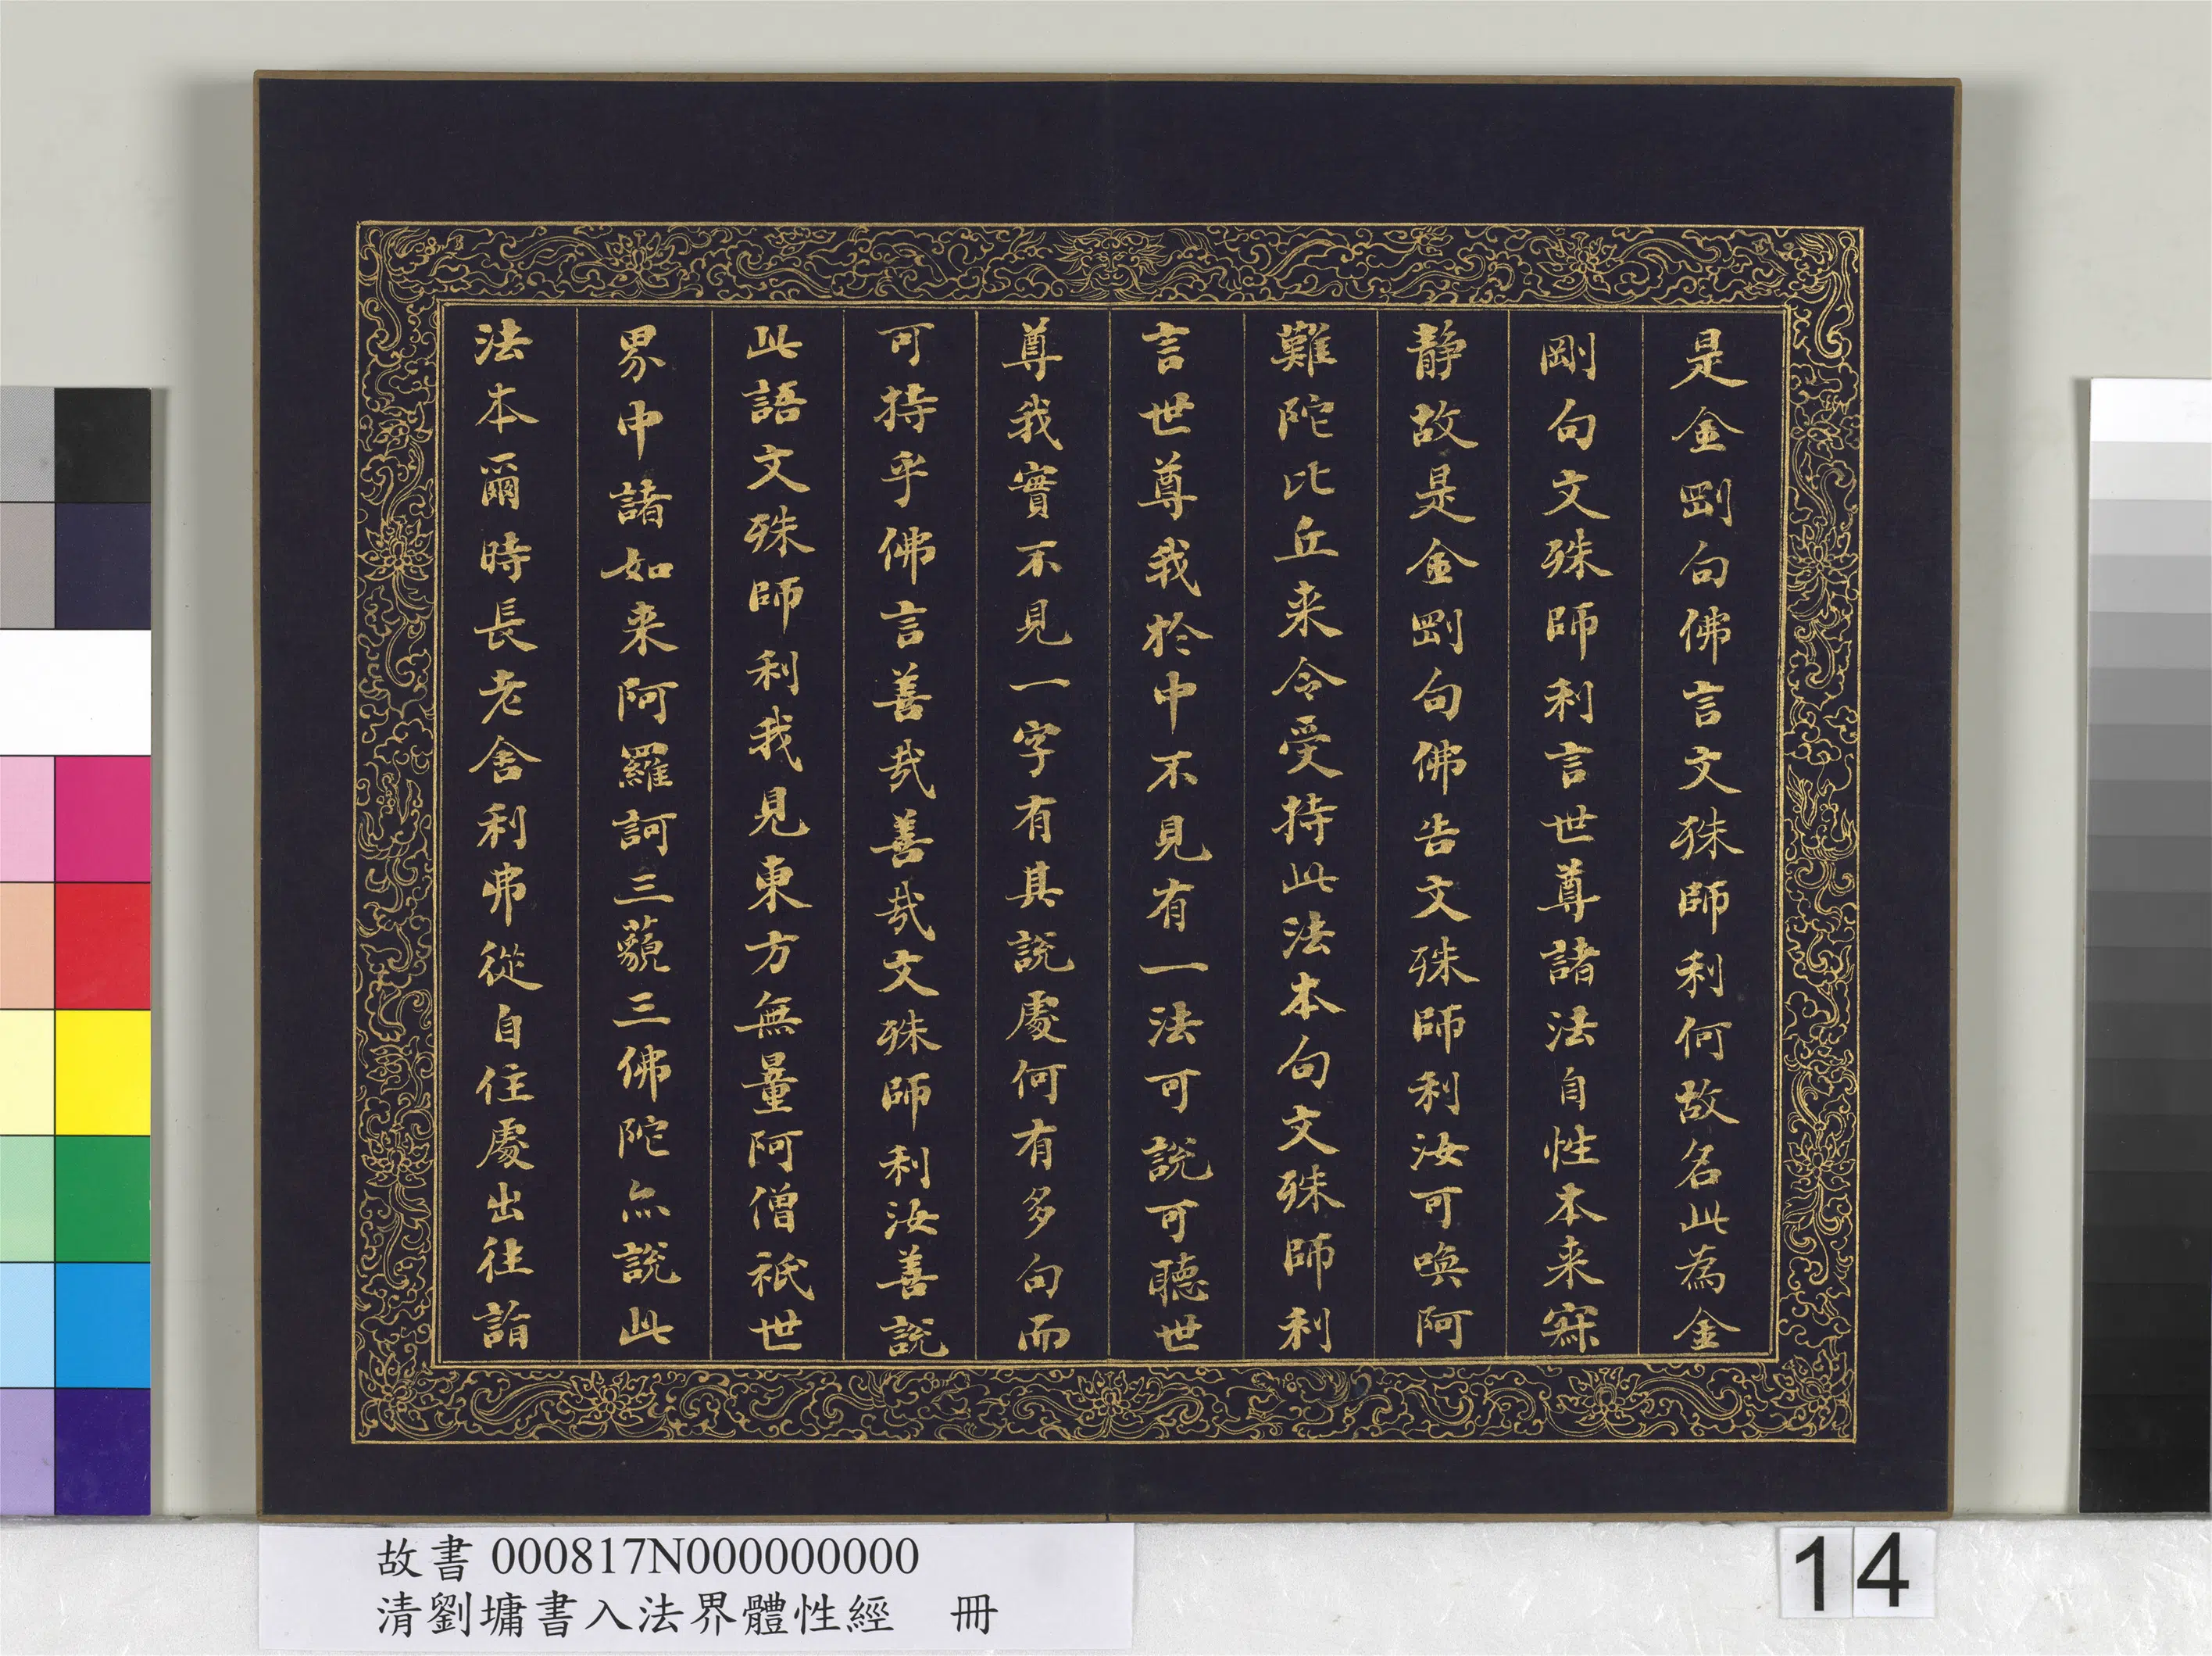 是金剛句佛言文殊師利何故名此為金
剛句文殊師利言世尊諸法自性本来寂
静故是金剛句佛告文殊師利汝可喚阿
難陀比丘来令受持此法本句文殊師利
言世尊我於中不見有一法可說可聽世
尊我實不見一字有其說處何有多句而
可持乎佛言善哉善哉文殊師利汝善說
此語文殊師利我見東方無量阿僧祇世
界中諸如来阿羅訶三藐三佛陀亦說此
法本爾時長老舍利弗從自住處出往詣
故書 000817N000000000
清劉墉書入法界體性經 冊
14